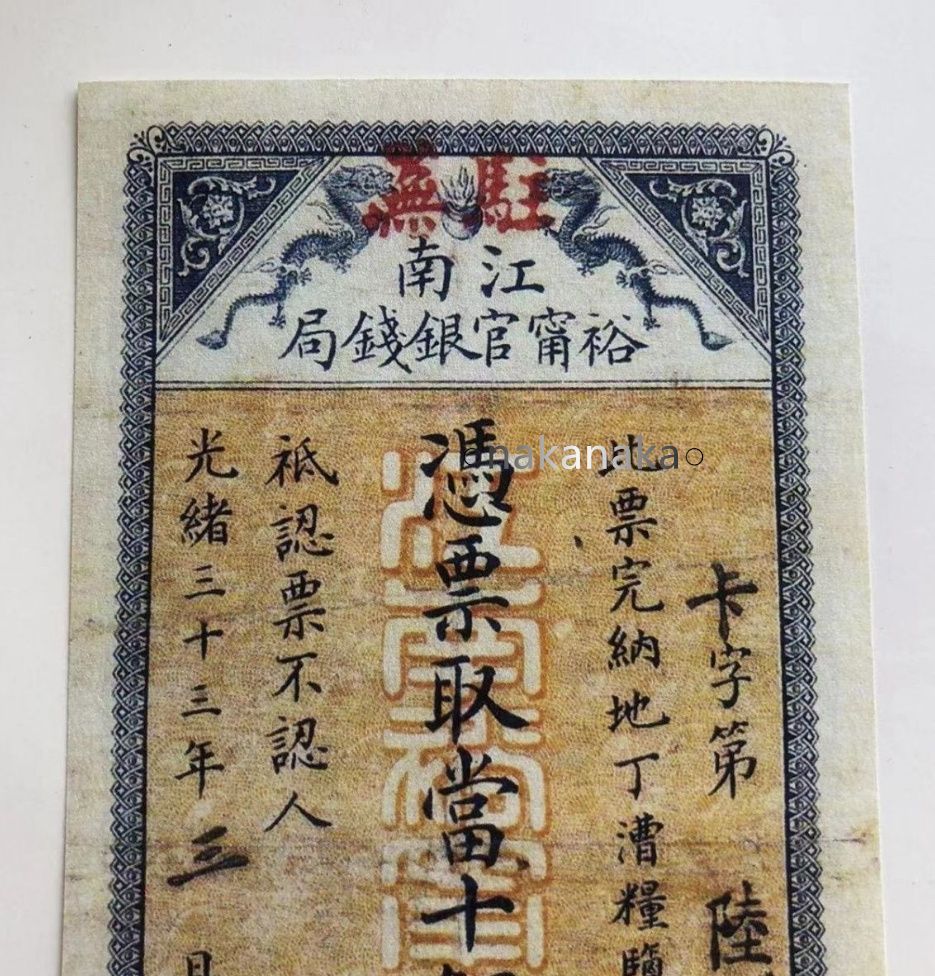 駐蕪
江南
裕甯官銀錢局
卡字第陸
此票完納地丁漕糧鹽
憑票取當十
祗認票不認人
光緒三十三年三月
onakanaka○